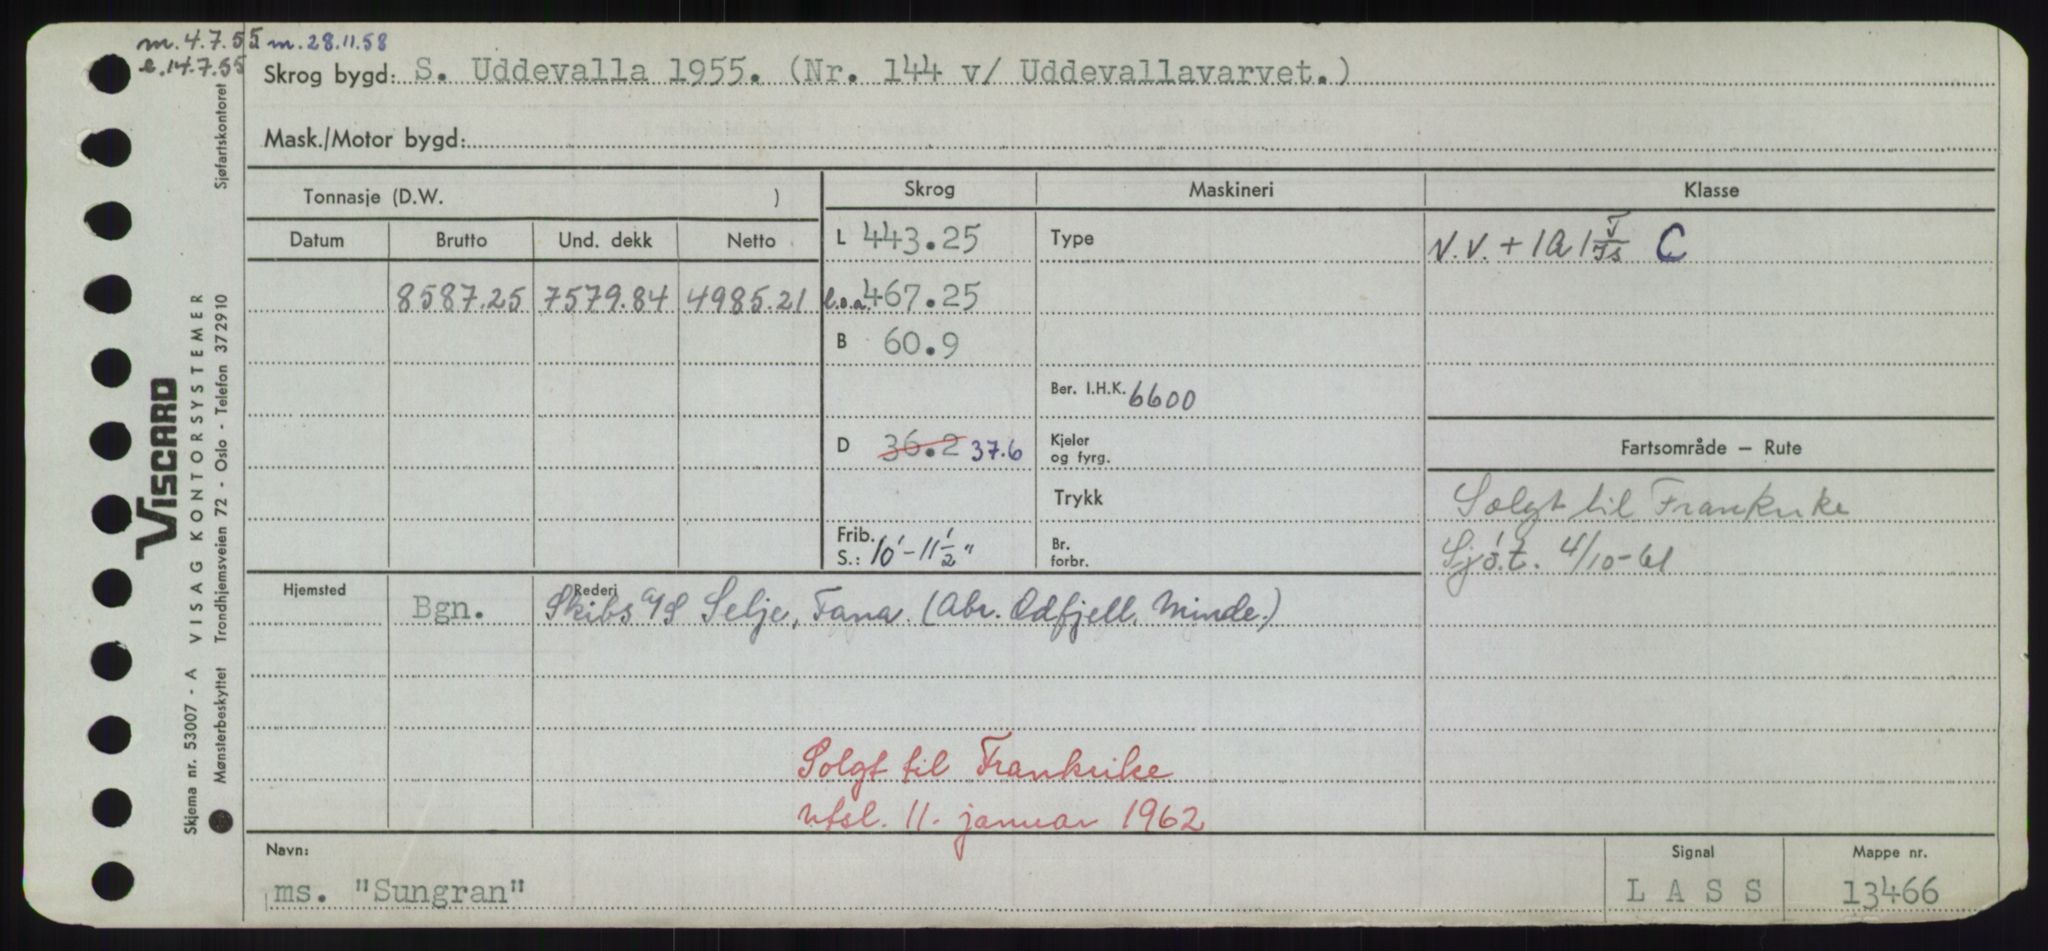 m. 4.7.55 m. 28.11.58
l. 14.7.55
Skrog bygd: S. Uddevalla 1955. (Nr. 144 v/ Uddevallavarvet.)
Mask./Motor bygd:
Tonnasje (D.W. )
Skrog
Maskineri
Klasse
Datum Brutto Und. dekk Netto
L 443.25
Type
N.V. + 1A1 T/Is C
8587.25 7579.84 4985.21
l.o.a. 467.25
B 60.9
Ber. I.H.K. 6600
D 36.2 37.6
Kjeler
og fyrg.
Fartsområde — Rute
Trykk
Solgt til Frankrike
Frib.
S.: 10'-11 1/2"
Br.
forbr.
Sjó.t. 4/10-61
Hjemsted
Rederi
Bgn. Skibs a/s Selje, Fana. (Abr. Odfjell, Minde.)
Solgt til Frankrike
utsl. 11. januar 1962
Navn:
Signal
Mappe nr.
ms. "Sungran"
L A S S
13466
VISCARD
Skjema nr. 53007 - A VISAG KONTORSYSTEMER
Mønsterbeskyttet Trondhjemsveien 72 - Oslo - Telefon 372910 Sjøfartskontoret